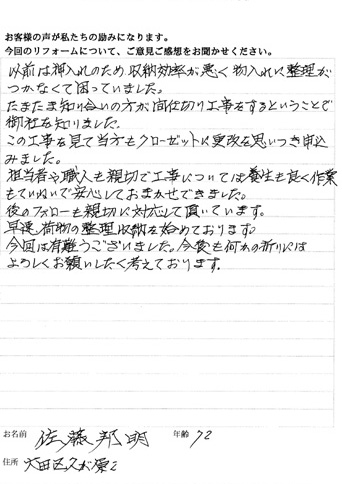 お客様の声が私たちの励みになります。
今回のリフォームについて、ご意見ご感想をお聞かせください。
以前は押入れのため収納効率が悪く物入れに整理が
つかなくて困っていました。
たまたま知り合いの方が間仕切り工事をするということで
御社を知りました。
この工事を見て当方もクローゼットに更改を思いつき申込
みました。
担当者や職人も親切で工事については養生も良く作業
もていねいで安心しておまかせできました。
後のフォローも親切に対応して頂いています。
早速荷物の整理収納を始めております。
今回は有難うございました。今後も何かの折りには
よろしくお願いしたく考えております。
お名前 佐藤邦明 年齢 72
住所 大田区久が原2